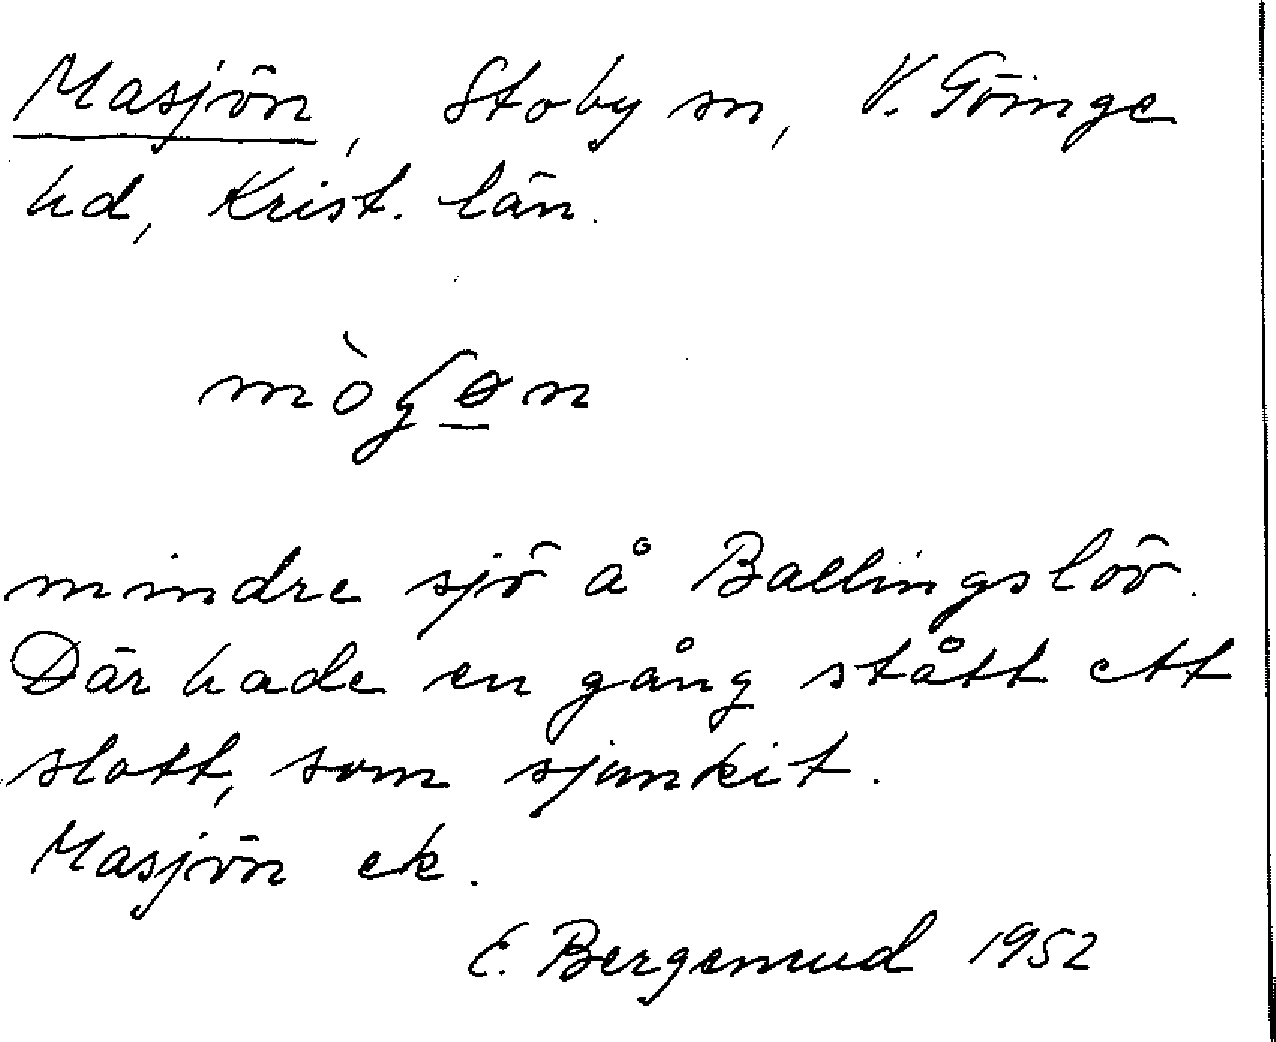 Masjön, Stoby sn, V. Göinge
hd, Krist. län.
mindre sjö å Ballingslöv.
Där hade en gång stått ett
slott, som sjunkit.
Masjön ek.
E. Bergemud 1952